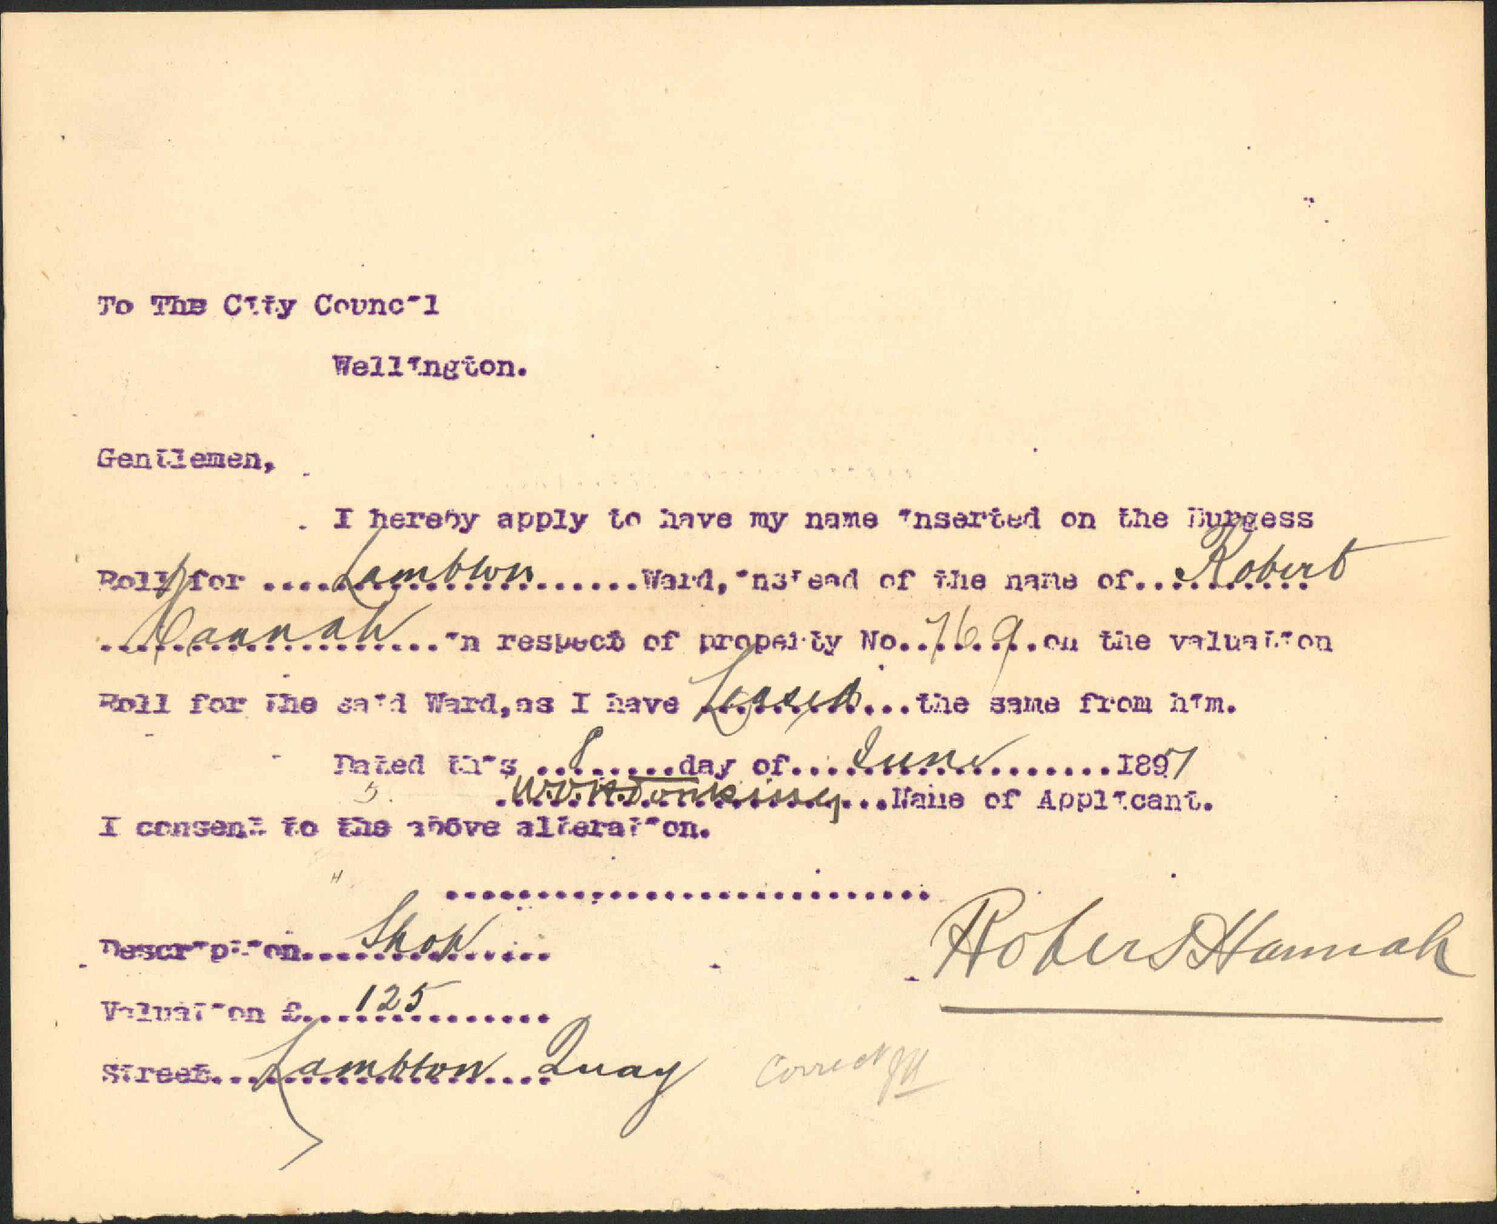 To The City Council
Wellington.
Gentlemen,
I hereby apply to have my name inserted on the Burgess
Roll for ....Lambton......Ward, instead of the name of..Robert
Hannah..in respect of property No..769..on the valuation
Roll for the said Ward, as I have Leased...the same from him.
Dated this ..8....day of....June..........1897
...Name of Applicant.
I consent to the above alteration.
..............................
Description....Shop....
Robert Hannah
Valuation £...125.......
Street..Lambton Quay
Correct